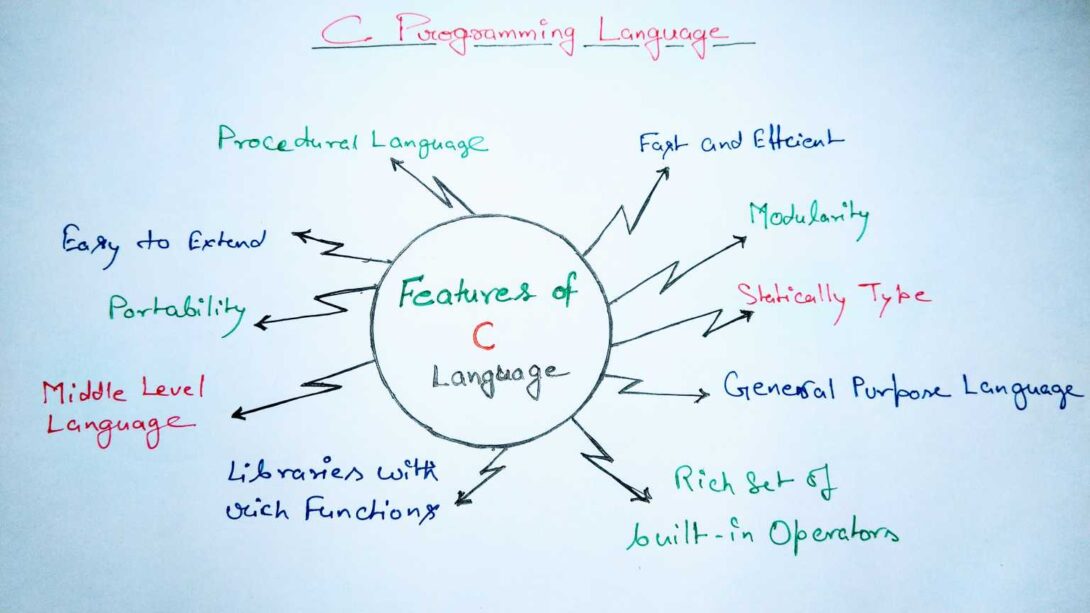 C Programming Language
Procedural Language
Fast and Efficient
Easy to Extend
Modularity
Portability
Features of
C
Language
Statically Type
Middle Level
Language
General Purpose Language
Libraries with
rich Functions
Rich Set of
built-in Operators